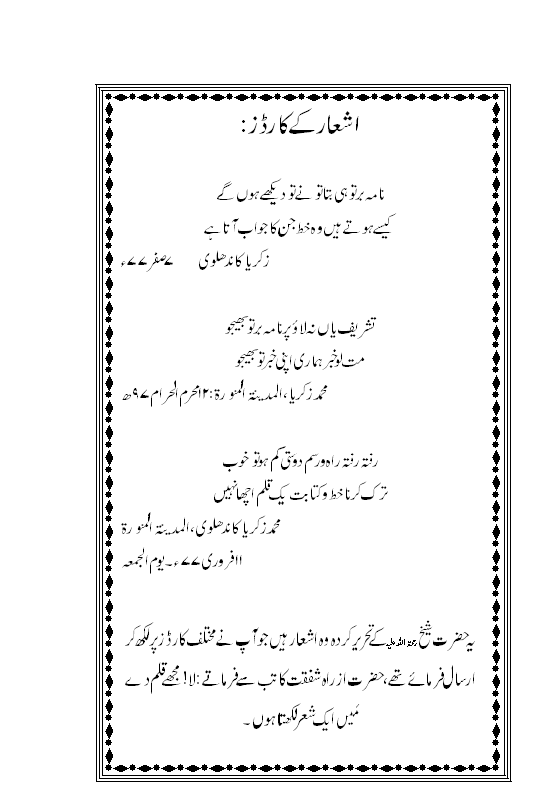 اشعار کے کارڈز:
نامہ بر تو ہی بتا تو نے تو دیکھے ہوں گے
کیسے ہوتے ہیں وہ خط جن کا جواب آتا ہے
زکریا کاندھلوی ۷ صفر ۷۷ء
تشریف یاں نہ لاؤ پر نامہ بر تو بھیجو
مت لو خبر ہماری اپنی خبر تو بھیجو
محمد زکریا، المدینۃ المنورۃ: ۱۲ محرم الحرام ۹۷ھ
رفتہ رفتہ راہ و رسم دوستی کم ہو تو خوب
ترک کرنا خط و کتابت یک قلم اچھا نہیں
محمد زکریا کاندھلوی، المدینۃ المنورۃ
۱۱ فروری ۷۷ء۔ یوم الجمعہ
یہ حضرت شیخ رحمۃ اللہ علیہ کے تحریر کردہ وہ اشعار ہیں جو آپ نے مختلف کارڈز پر لکھ کر
ارسال فرمائے تھے، حضرت از راہ شفقت کاتب سے فرماتے: لا! مجھے قلم دے
مَیں ایک شعر لکھتا ہوں۔